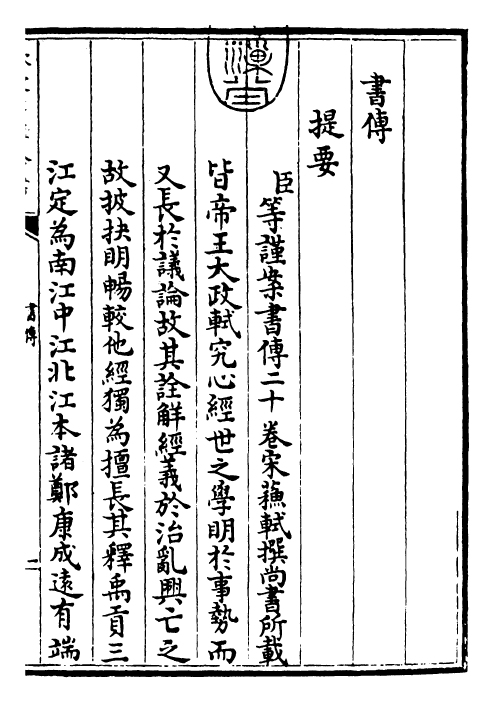 書傳
提要
臣等謹案書傳二十卷宋蘇軾撰尚書所載
皆帝王大政軾究心經世之學明於事勢而
又長於議論故其詮解經義於治亂興亡之
故披抉明暢較他經獨為擅長其釋禹貢三
江定為南江中江北江本諸鄭康成遠有端
書傳
二